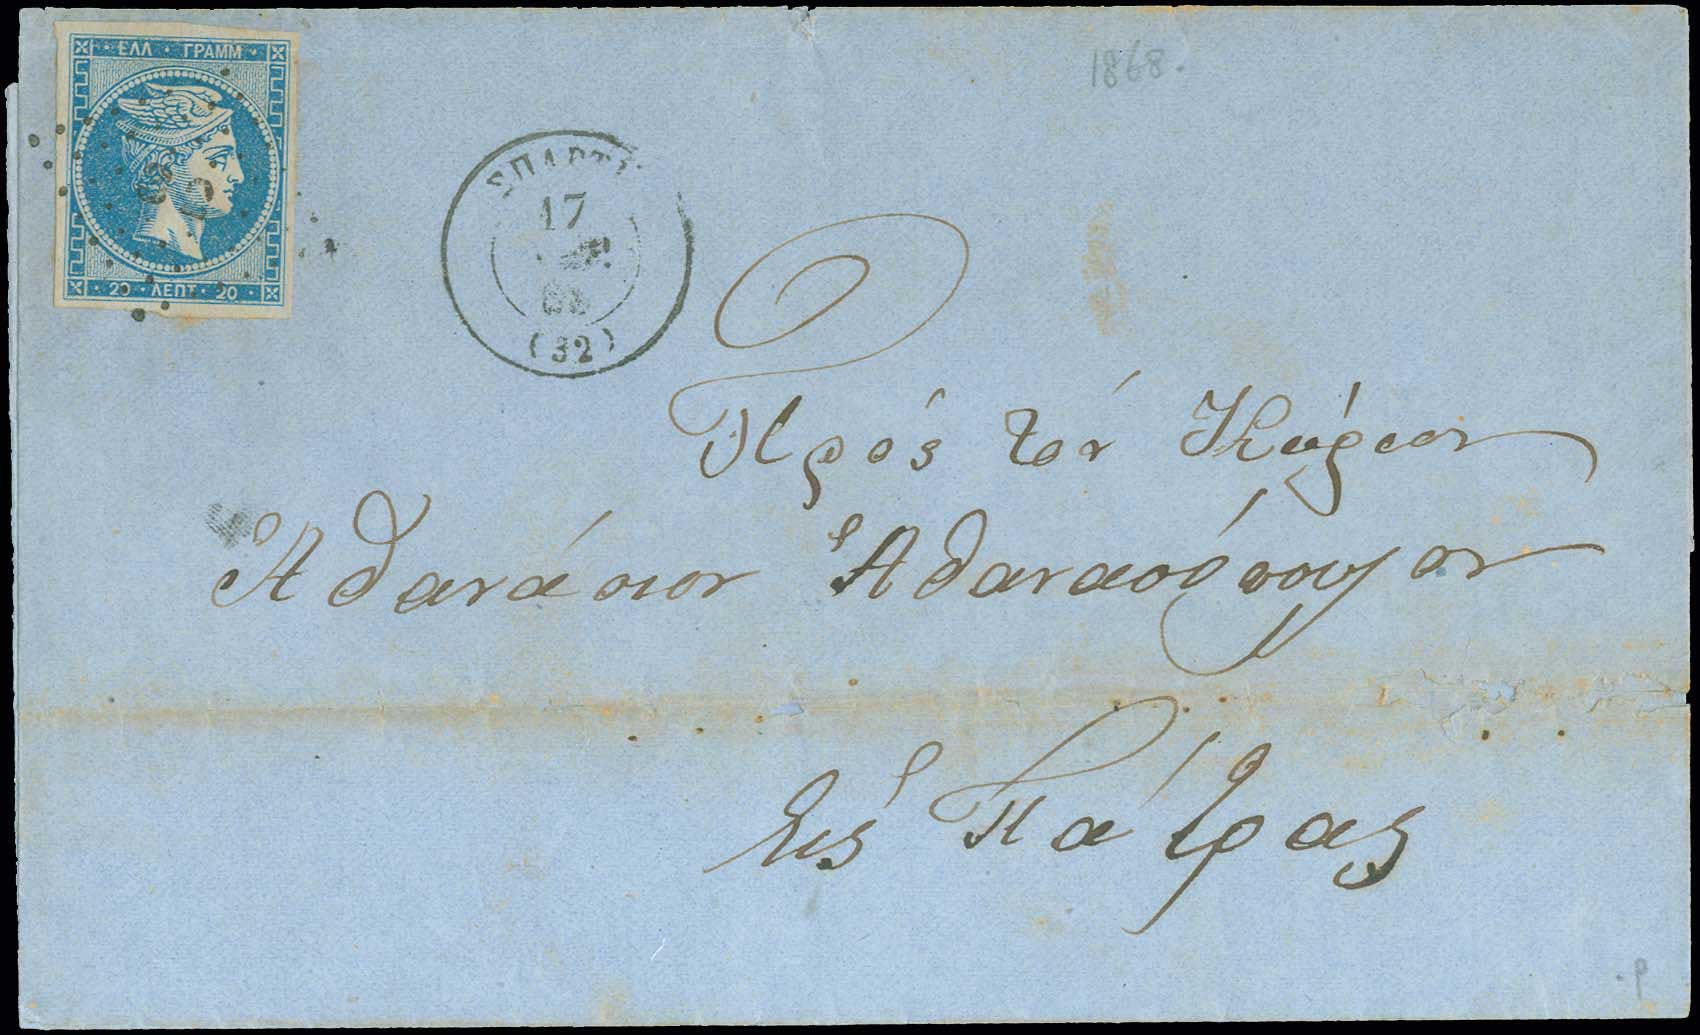 ΕΛΛ · ΓΡΑΜΜ ·
· 20 · ΛΕΠΤ · 20 ·
1868.
ΣΠΑΡΤ
17
68
(32)
Πρός τόν Κύριον
Ἀθανάσιον Ἀθανασόπουλον
Εἰς Πάτρας
P